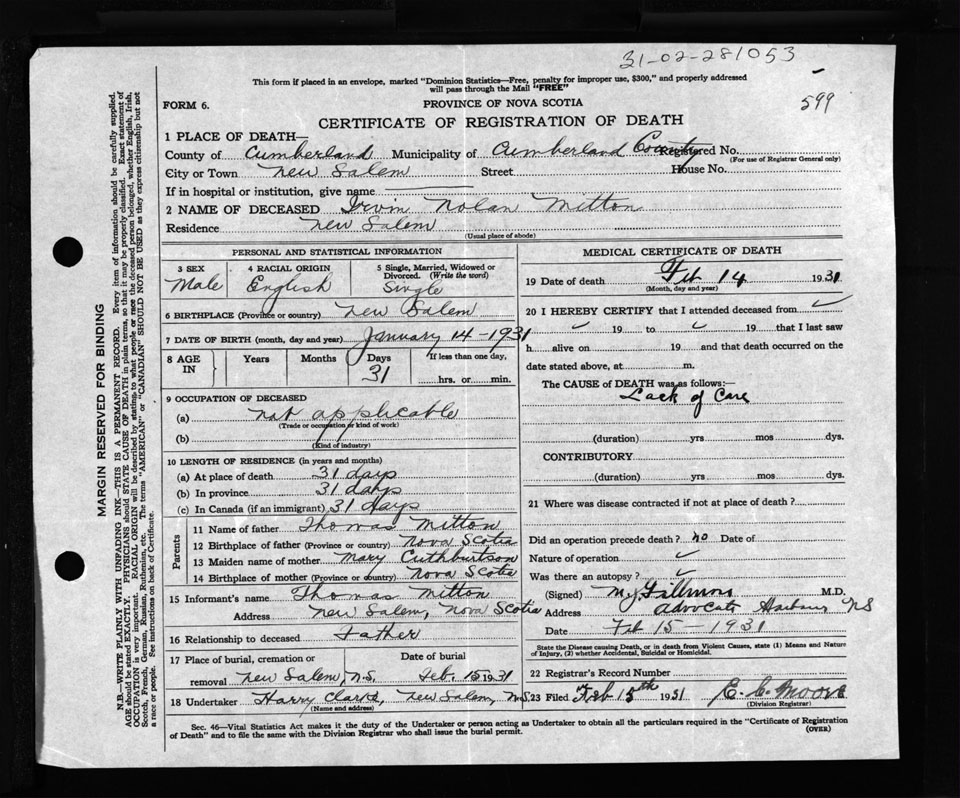 31-02-281053
This form if placed in an envelope, marked "Dominion Statistics—Free, penalty for improper use, $300," and properly addressed
will pass through the Mail "FREE"
599
FORM 6.
PROVINCE OF NOVA SCOTIA
CERTIFICATE OF REGISTRATION OF DEATH
1 PLACE OF DEATH—
County of Cumberland Municipality of Cumberland County Registered No.
(For use of Registrar General only)
City or Town New Salem Street House No.
If in hospital or institution, give name
2 NAME OF DECEASED Irvin Nolan Mitton
Residence New Salem
(Usual place of abode)
PERSONAL AND STATISTICAL INFORMATION
3 SEX 4 RACIAL ORIGIN 5 Single, Married, Widowed or
Divorced. (Write the word)
Male English Single
6 BIRTHPLACE (Province or country) New Salem
7 DATE OF BIRTH (month, day and year) January 14-1931
8 AGE IN Years Months Days If less than one day,
31 hrs. or min.
9 OCCUPATION OF DECEASED
(a) not applicable
(Trade or occupation or kind of work)
(b)
(Kind of industry)
10 LENGTH OF RESIDENCE (in years and months)
(a) At place of death 31 days
(b) In province 31 days
(c) In Canada (if an immigrant) 31 days
Parents
11 Name of father Thomas Mitton
12 Birthplace of father (Province or country) Nova Scotia
13 Maiden name of mother Mary Cuthburtson
14 Birthplace of mother (Province or country) Nova Scotia
15 Informant's name Thomas Mitton
Address New Salem, Nova Scotia
16 Relationship to deceased Father
17 Place of burial, cremation or Date of burial
removal New Salem, N.S. Feb. 15 1931
18 Undertaker Harry Clarke, New Salem, N.S.
(Name and address)
MEDICAL CERTIFICATE OF DEATH
19 Date of death Feb 14 1931
(Month, day and year)
20 I HEREBY CERTIFY that I attended deceased from
19 to 19 that I last saw
h alive on 19 and that death occurred on the
date stated above, at m.
The CAUSE of DEATH was as follows:—
Lack of Care
(duration) yrs mos dys.
CONTRIBUTORY
(duration) yrs mos dys.
21 Where was disease contracted if not at place of death?
Did an operation precede death? no Date of
Nature of operation
Was there an autopsy?
(Signed) M.D.
Address Advocate Harbour NS
Date Feb 15-1931
State the Disease causing Death, or in death from Violent Causes, state (1) Means and Nature
of Injury, (2) whether Accidental, Suicidal or Homicidal.
22 Registrar's Record Number
23 Filed Feb 15th 1931 E. C. Moore
(Division Registrar)
Sec. 46—Vital Statistics Act makes it the duty of the Undertaker or person acting as Undertaker to obtain all the particulars required in the "Certificate of Registration
of Death" and to file the same with the Division Registrar who shall issue the burial permit.
(OVER)
MARGIN RESERVED FOR BINDING
N.B.—WRITE PLAINLY WITH UNFADING INK—THIS IS A PERMANENT RECORD. Every item of information should be carefully supplied.
AGE should be stated EXACTLY. PHYSICIANS should STATE CAUSE OF DEATH in plain terms, so that it may be properly classified. Exact statement of
OCCUPATION is very important. RACIAL ORIGIN will be described by stating to what people or race the deceased person belonged, whether English, Irish,
Scotch, French, German, Russian, Ruthenian, etc. The terms "AMERICAN" or "CANADIAN" SHOULD NOT BE USED as they express citizenship but not
a race or people. See instructions on back of Certificate.